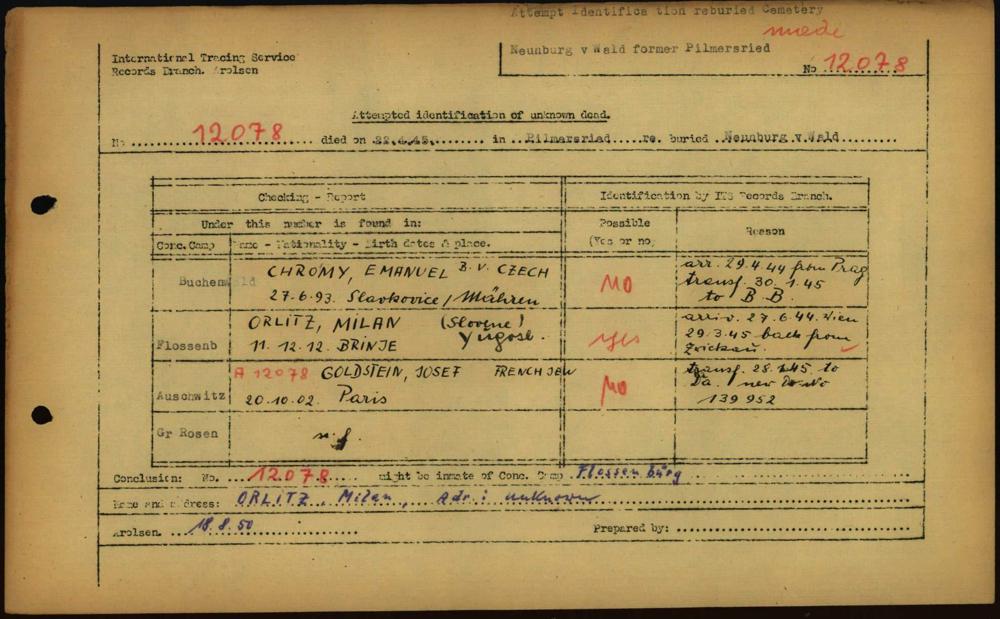 Attempt Identification reburied Cemetery
made
Neunburg v Wald former Pilmersried
No 12078
International Tracing Service
Records Branch. Arolsen
Attempted identification of unknown dead.
No 12078 died on 22.4.45. in Pilmersried re. buried Neunburg v.Wald
Checking - Report
Identification by ITS Records Branch.
Under this number is found in:
Possible (Yes or no)
Reason
Conc. Camp
Name - Nationality - Birth dates & place.
Buchenwald
CHROMY, EMANUEL B.V. CZECH
27.6.93. Slavkovice/Mähren
NO
arr. 29.4.44 from Prag
transf. 30.1.45
to B.B.
Flossenb
ORLITZ, MILAN (Slovene)
11.12.12. BRINJE Yugosl.
yes
arriv. 27.6.44 Wien
29.3.45 back from
Zwickau.
Auschwitz
A 12078 GOLDSTEIN, JOSEF FRENCH JEW
20.10.02. Paris
NO
transf. 28.1.45 to
Da. new No
139952
Gr Rosen
n.f.
Conclusion: No. 12078 might be inmate of Conc. Camp Flossenbürg
Name and address: ORLITZ, Milan, adr.: unknown
Arolsen. 18.8.50
Prepared by: